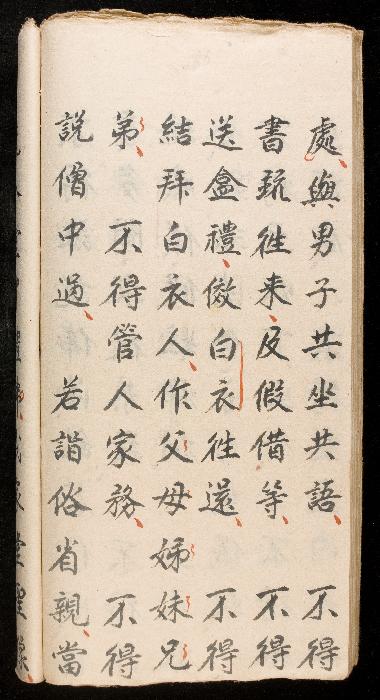 處與男子共坐共語 不得
書疏徃来及假借等 不得
送盒禮傚白衣徃還 不得
結拜白衣人作父母姊妹兄
弟 不得管人家務 不得
說僧中過 若詣俗省親當